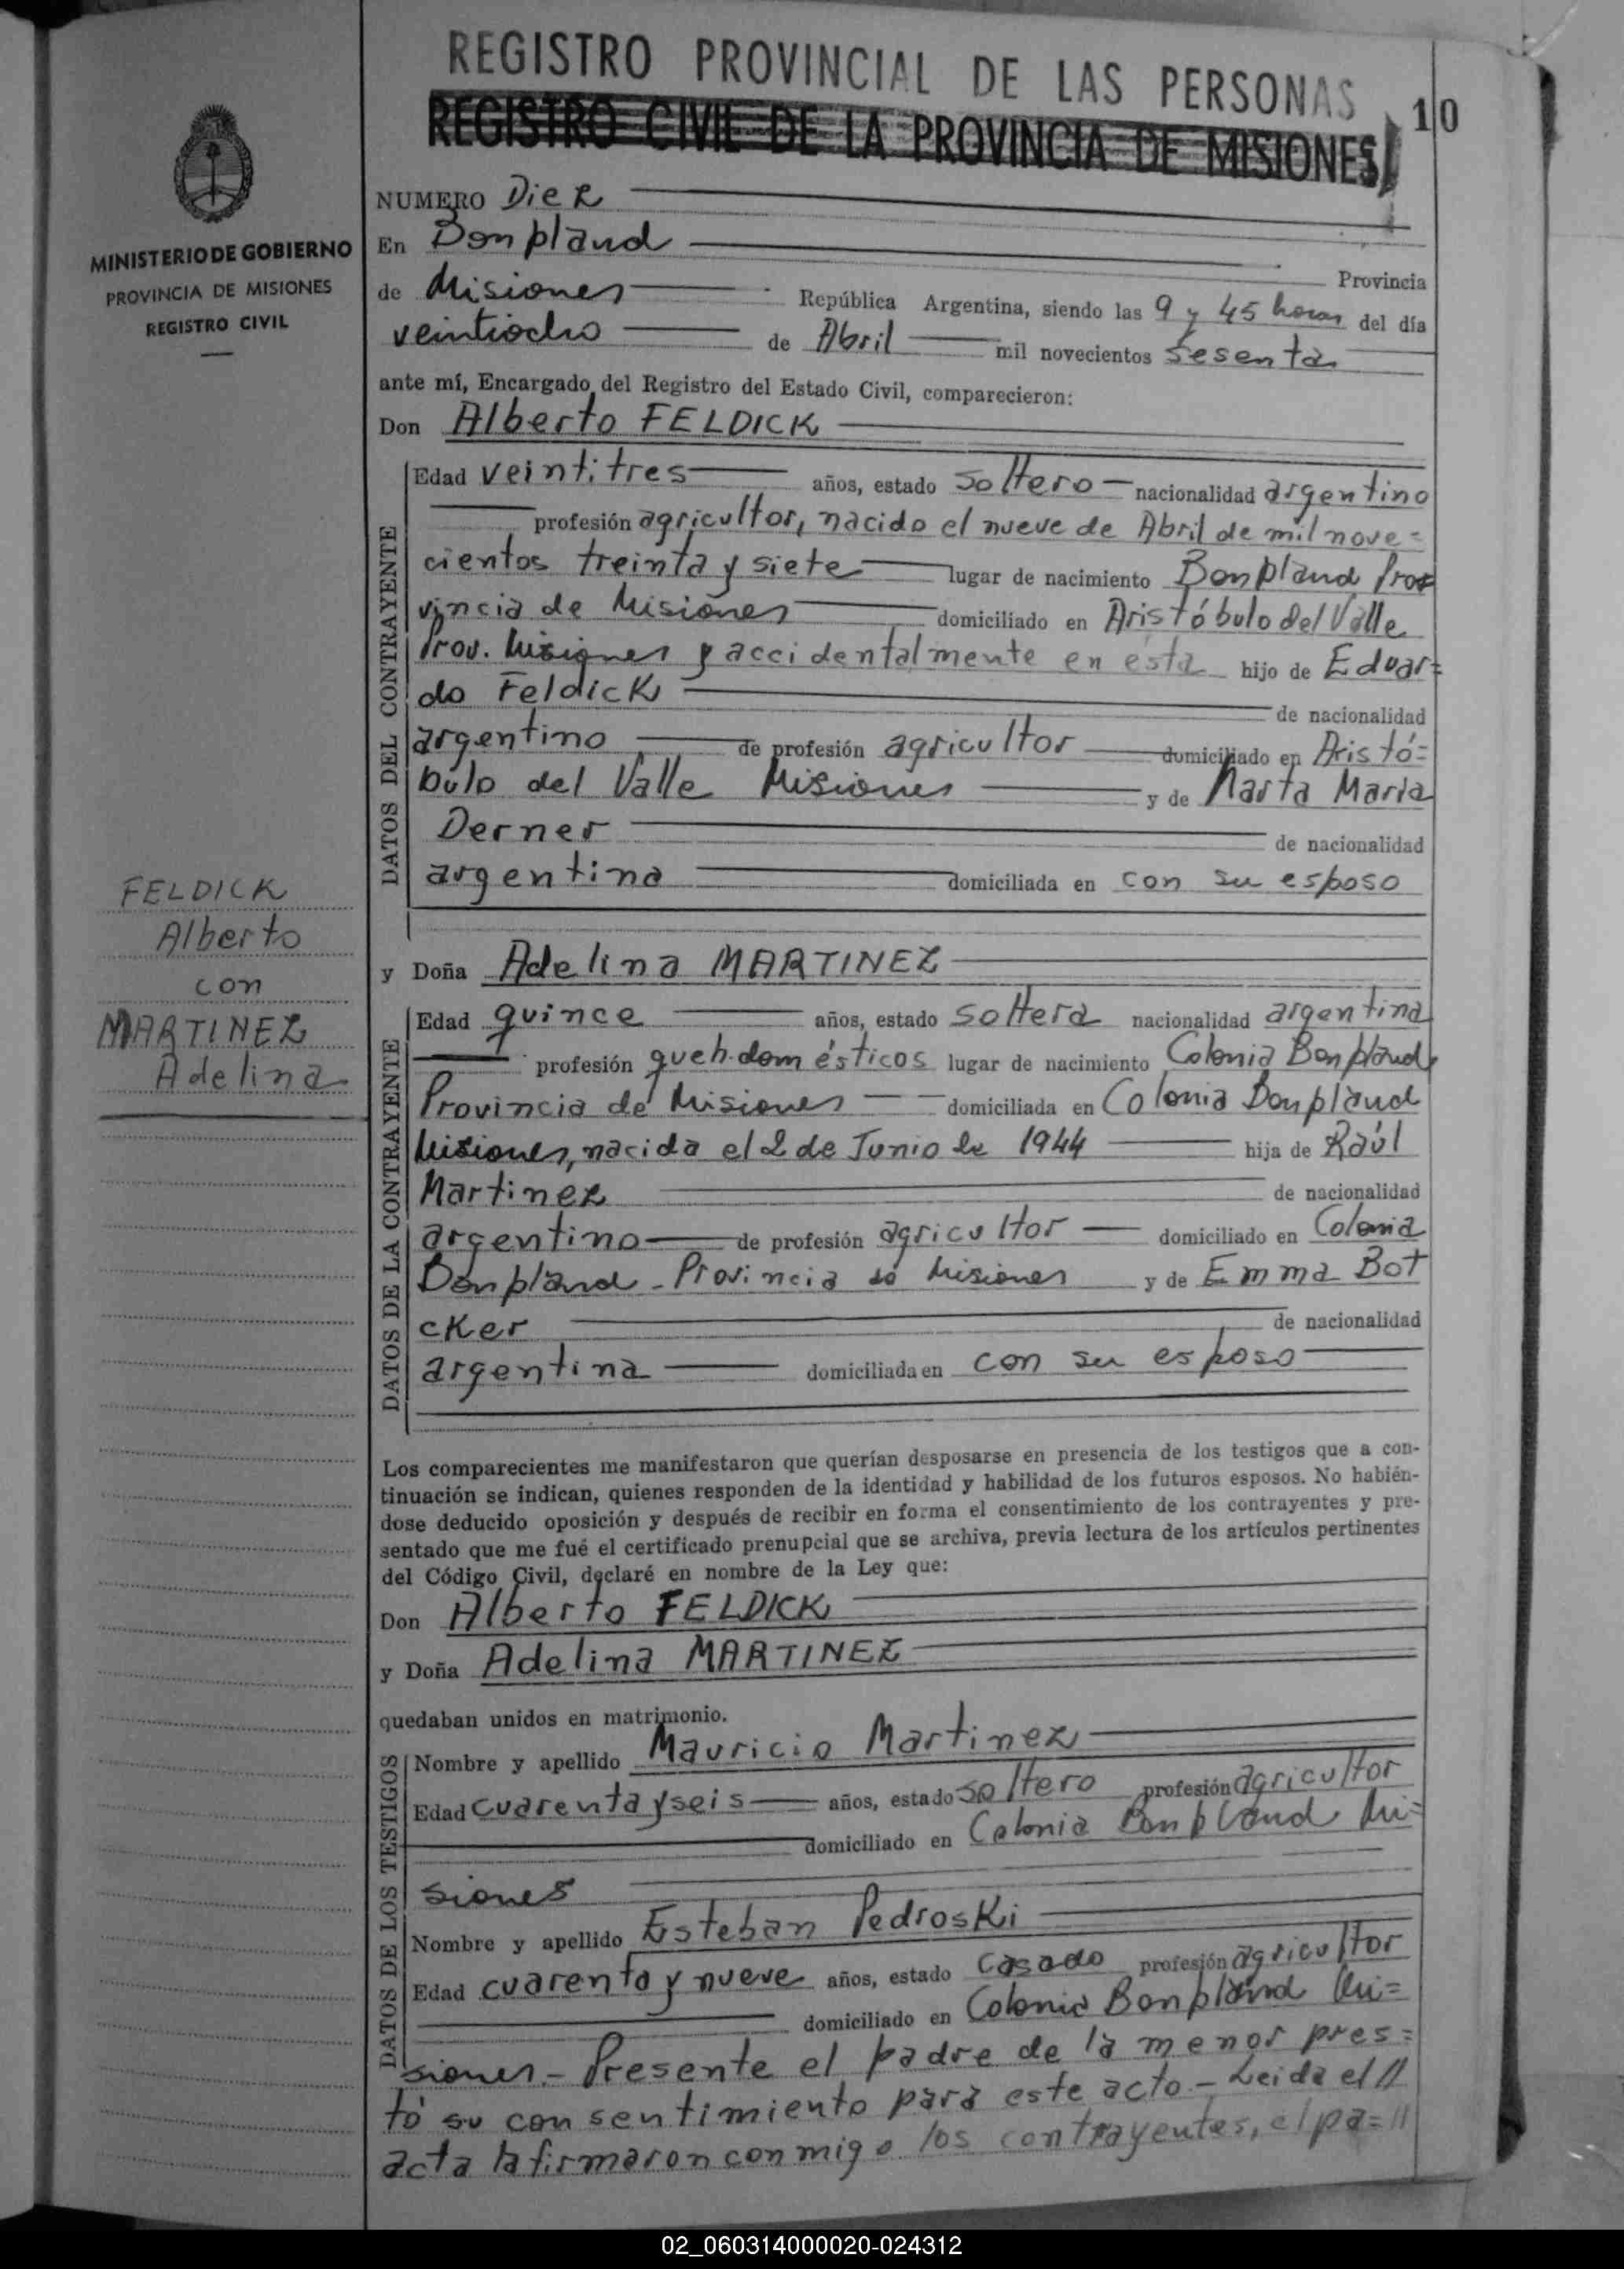 REGISTRO PROVINCIAL DE LAS PERSONAS
REGISTRO CIVIL DE LA PROVINCIA DE MISIONES
10
MINISTERIO DE GOBIERNO
PROVINCIA DE MISIONES
REGISTRO CIVIL
FELDICK
Alberto
con
MARTINEZ
Adelina
NUMERO Diez
En Bonpland
Provincia
de Misiones República Argentina, siendo las 9 y 45 horas del día
veintiocho de Abril mil novecientos sesenta
ante mí, Encargado del Registro del Estado Civil, comparecieron:
Don Alberto FELDICK
DATOS DEL CONTRAYENTE
Edad veintitres años, estado soltero nacionalidad argentino
profesión agricultor, nacido el nueve de Abril de mil nove=
cientos treinta y siete lugar de nacimiento Bonpland Pro=
vincia de Misiones domiciliado en Aristóbulo del Valle
Prov. Misiones y accidentalmente en ésta hijo de Eduar=
do Feldick de nacionalidad
argentino de profesión agricultor domiciliado en Aristó=
bulo del Valle Misiones y de Marta Maria
Derner de nacionalidad
argentina domiciliada en con su esposo
y Doña Adelina MARTINEZ
DATOS DE LA CONTRAYENTE
Edad quince años, estado soltera nacionalidad argentina
profesión queh. domésticos lugar de nacimiento Colonia Bonpland
Provincia de Misiones domiciliada en Colonia Bonpland
Misiones, nacida el 2 de Junio de 1944 hija de Raúl
Martinez de nacionalidad
argentino de profesión agricultor domiciliado en Colonia
Bonpland - Provincia de Misiones y de Emma Bot
cker de nacionalidad
argentina domiciliada en con su esposo
Los comparecientes me manifestaron que querían desposarse en presencia de los testigos que a con-
tinuación se indican, quienes responden de la identidad y habilidad de los futuros esposos. No habién-
dose deducido oposición y después de recibir en forma el consentimiento de los contrayentes y pre-
sentado que me fué el certificado prenupcial que se archiva, previa lectura de los artículos pertinentes
del Código Civil, declaré en nombre de la Ley que:
Don Alberto FELDICK
y Doña Adelina MARTINEZ
quedaban unidos en matrimonio.
DATOS DE LOS TESTIGOS
Nombre y apellido Mauricio Martinez
Edad cuarenta y seis años, estado soltero profesión agricultor
domiciliado en Colonia Bonpland Mi=
siones
Nombre y apellido Esteban Pedroski
Edad cuarenta y nueve años, estado casado profesión agricultor
domiciliado en Colonia Bonpland Mi=
siones.- Presente el padre de la menor pres=
tó su consentimiento para este acto - Leida el //
acta la firmaron conmigo los contrayentes, el pa=//
02_060314000020-024312